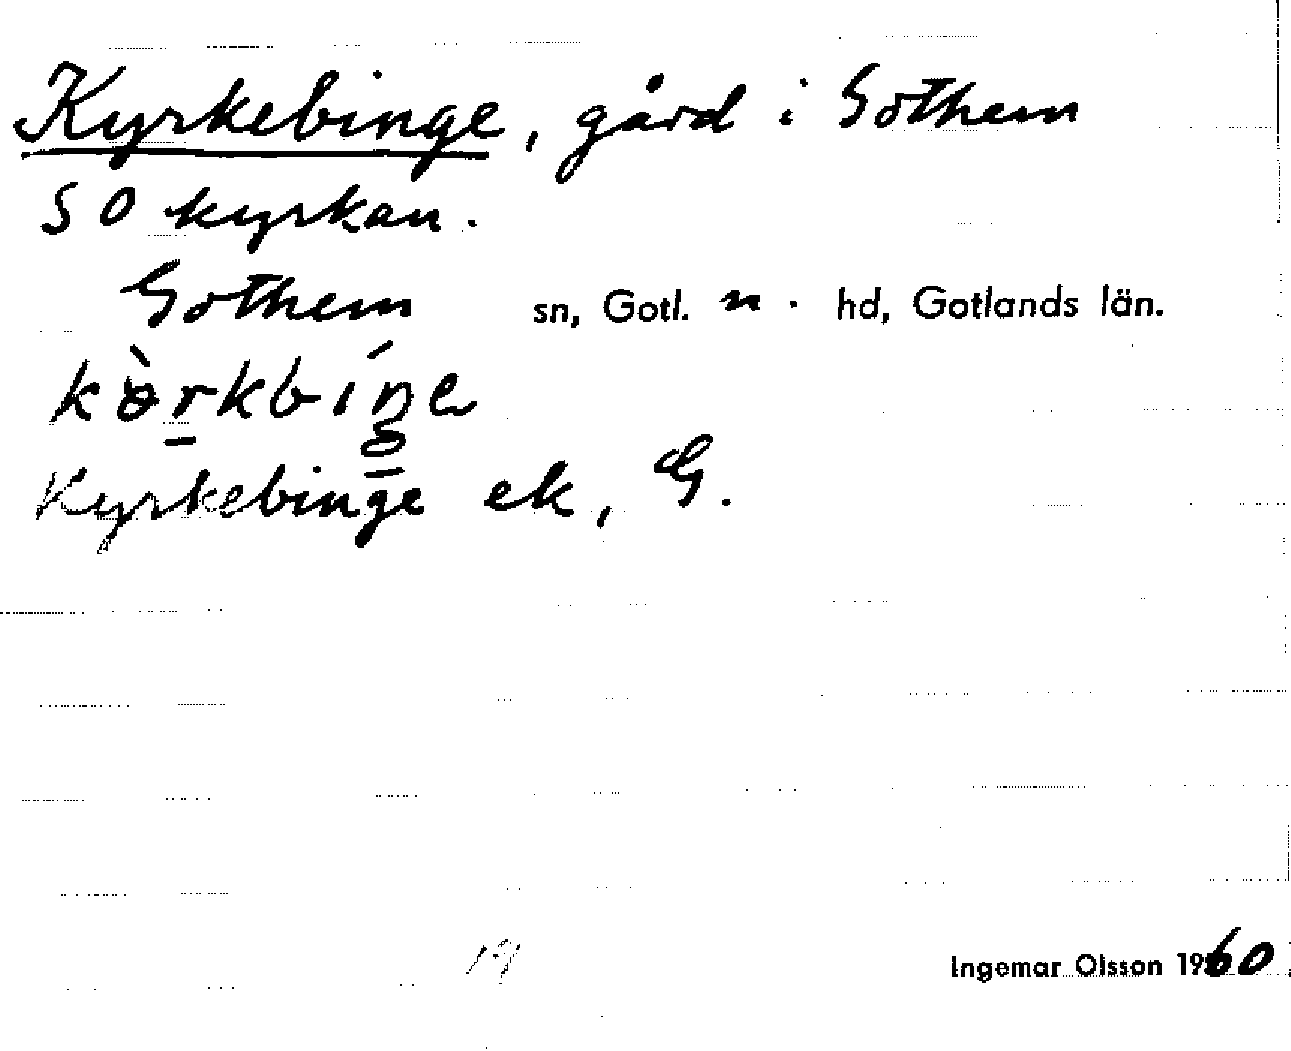 Kyrkebinge, gård i Gothem
SO kyrkan.
Gothem sn, Gotl. n. hd, Gotlands län.
Kyrkebinge ek, G.
Ingemar Olsson 1960